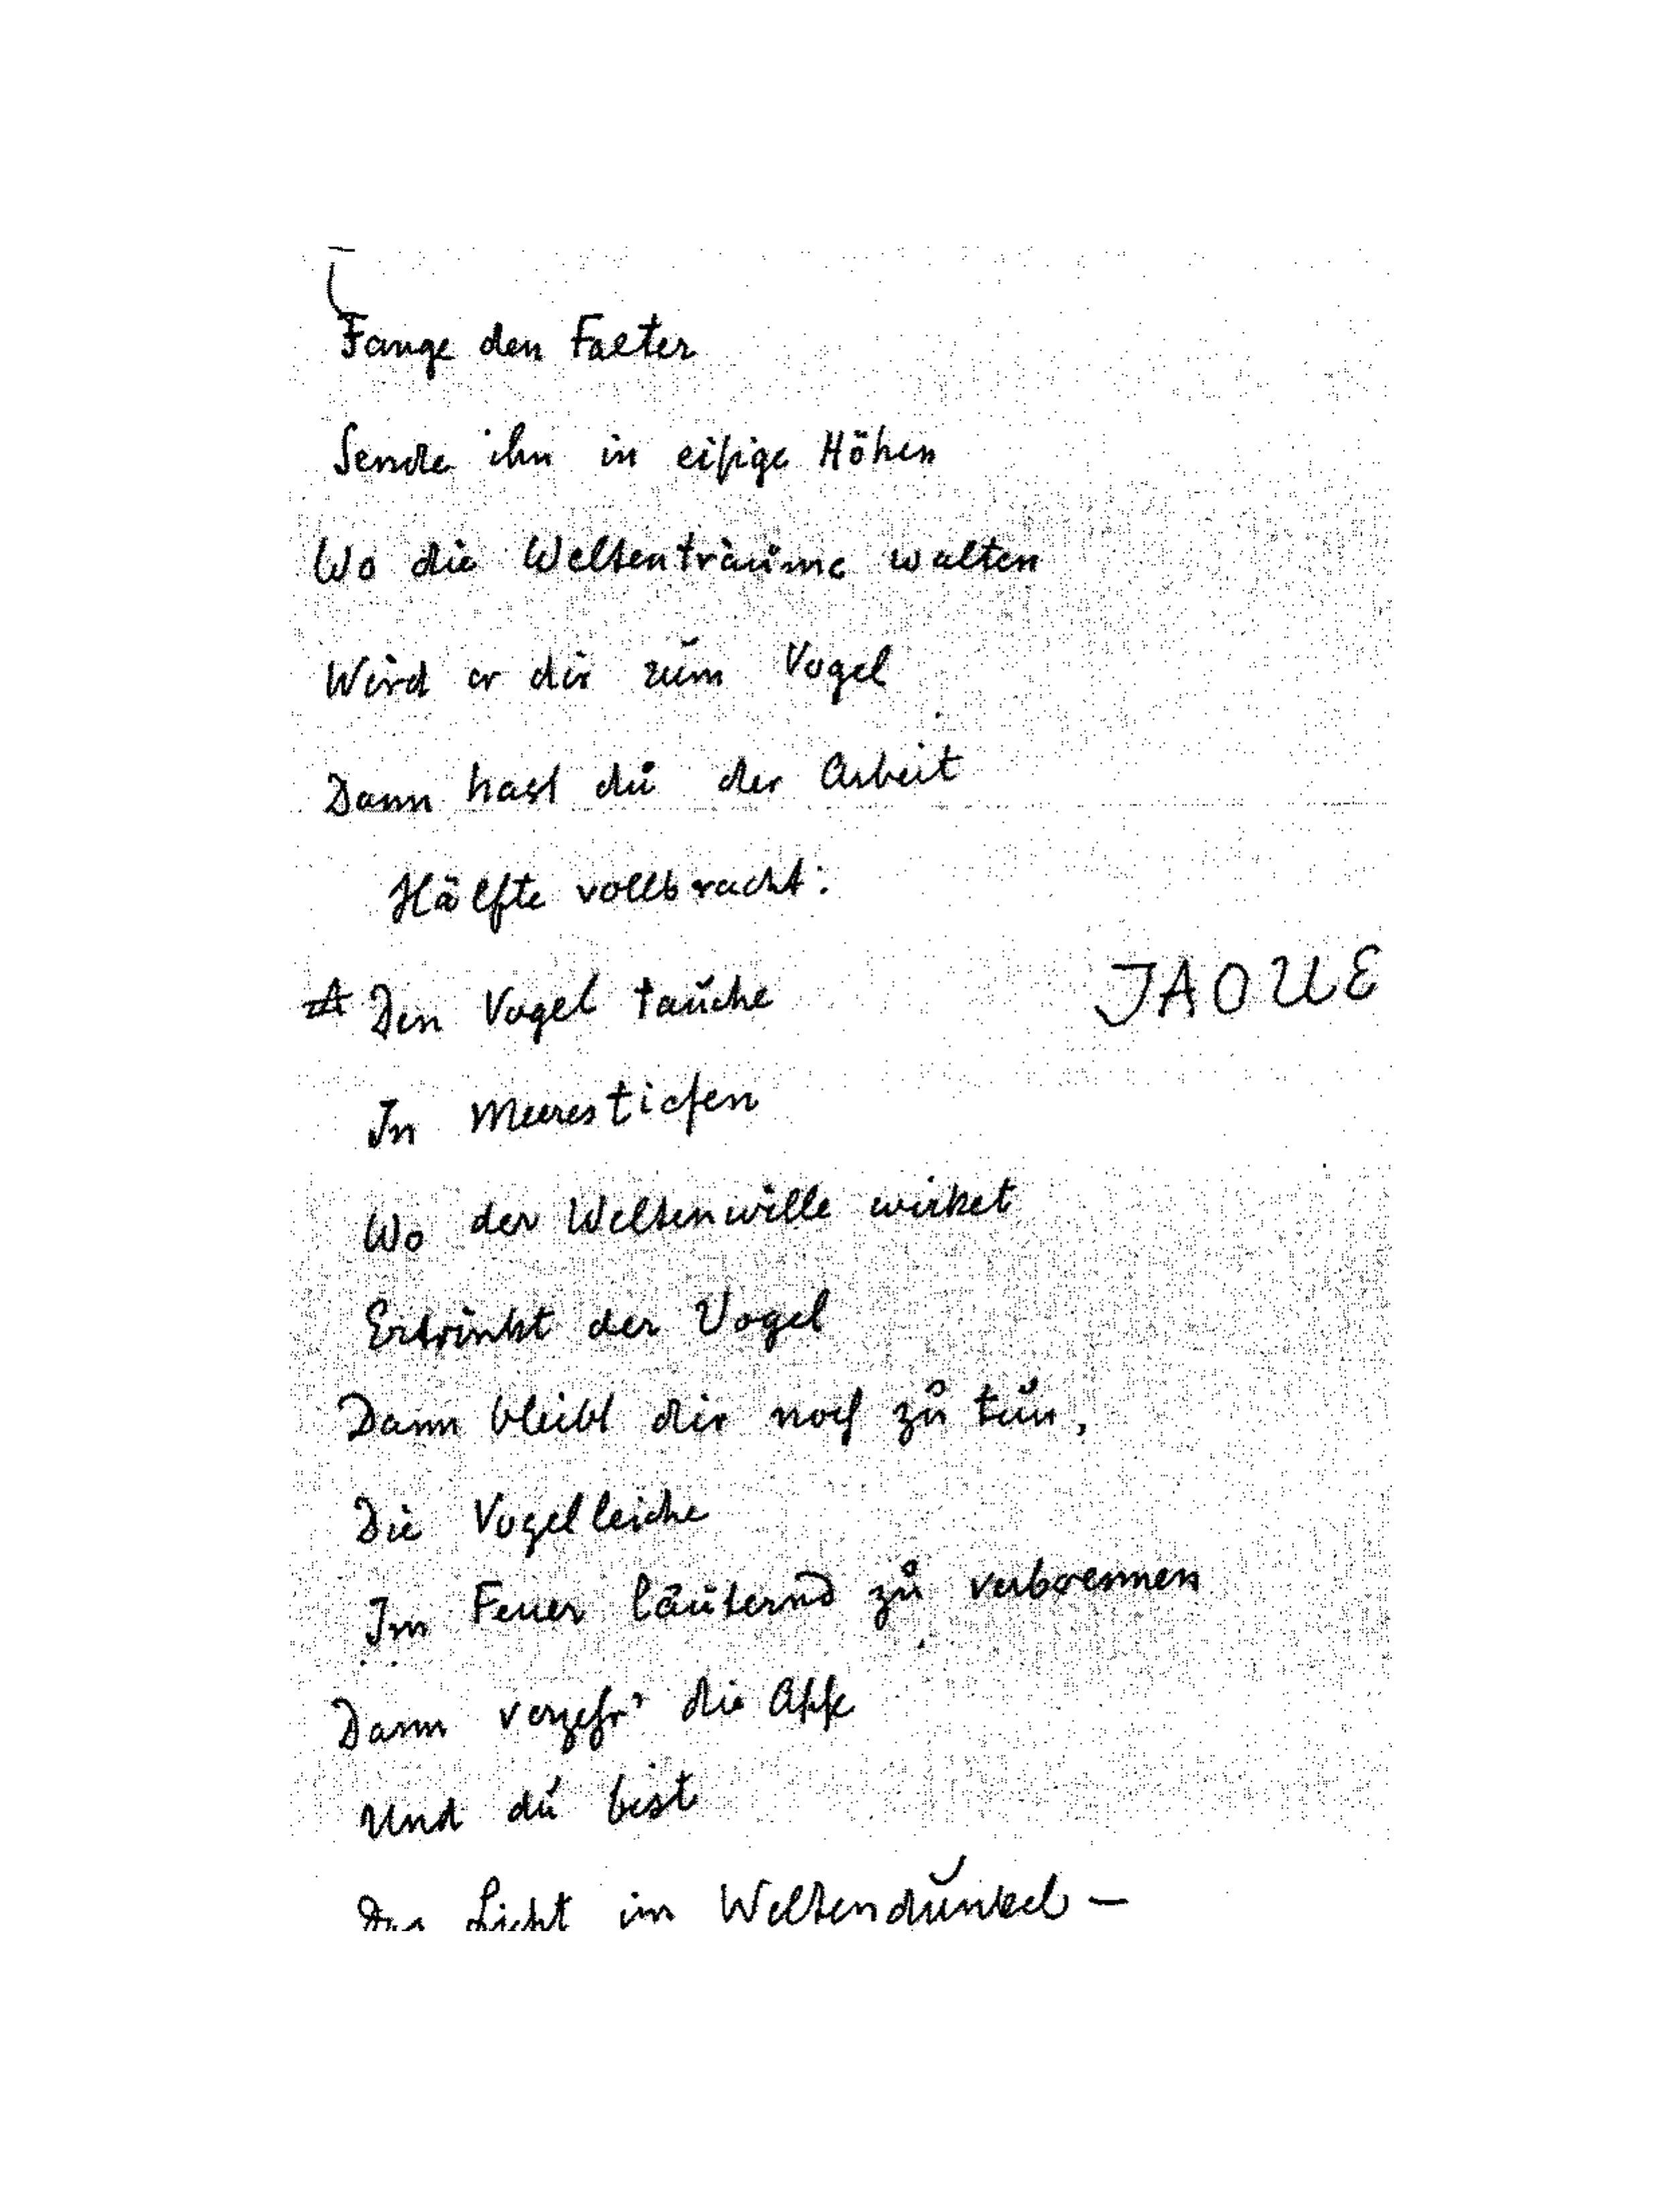 Fange den Falter
Sende ihn in eisige Höhen
Wo die Weltenträume walten
Wird er dir zum Vogel
Dann hast du der Arbeit
Hälfte vollbracht:
Den Vogel tauche
JAOUE
In Meerestiefen
Wo der Weltenwille wirket
Ertrinkt der Vogel
Dann bleibt dir noch zu tun,
Die Vogelleiche
Im Feuer läuternd zu verbrennen
Dann verzehr' die Asche
Und du bist
Das Licht im Weltendunkel —